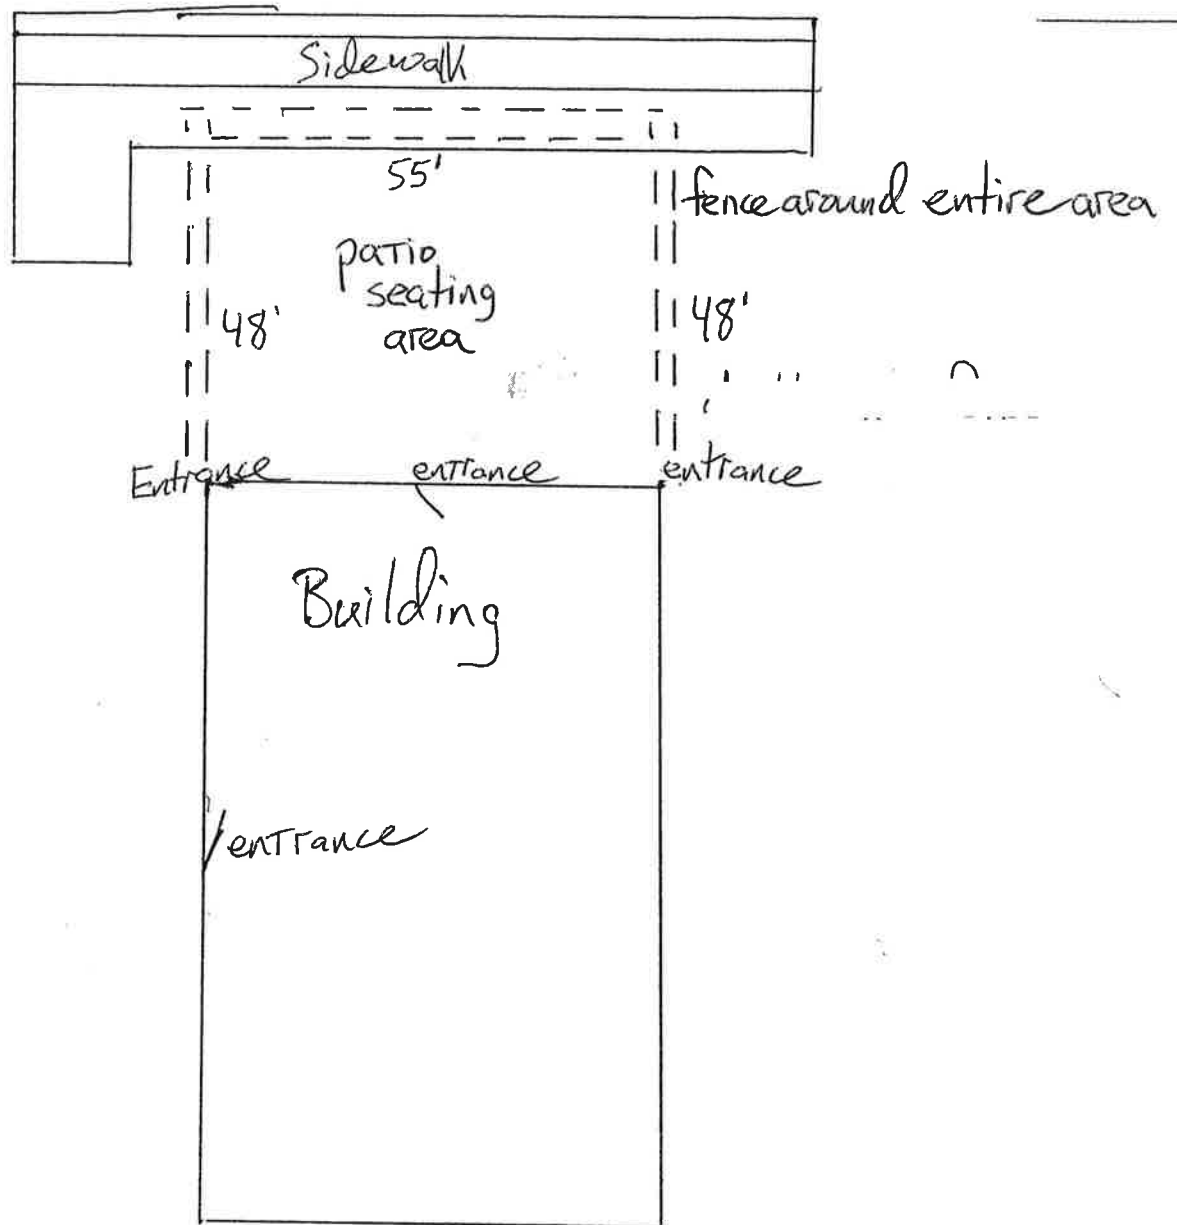 Sidewalk
55'
fence around entire area
patio
seating
area
48'
48'
Entrance
entrance
entrance
Building
entrance